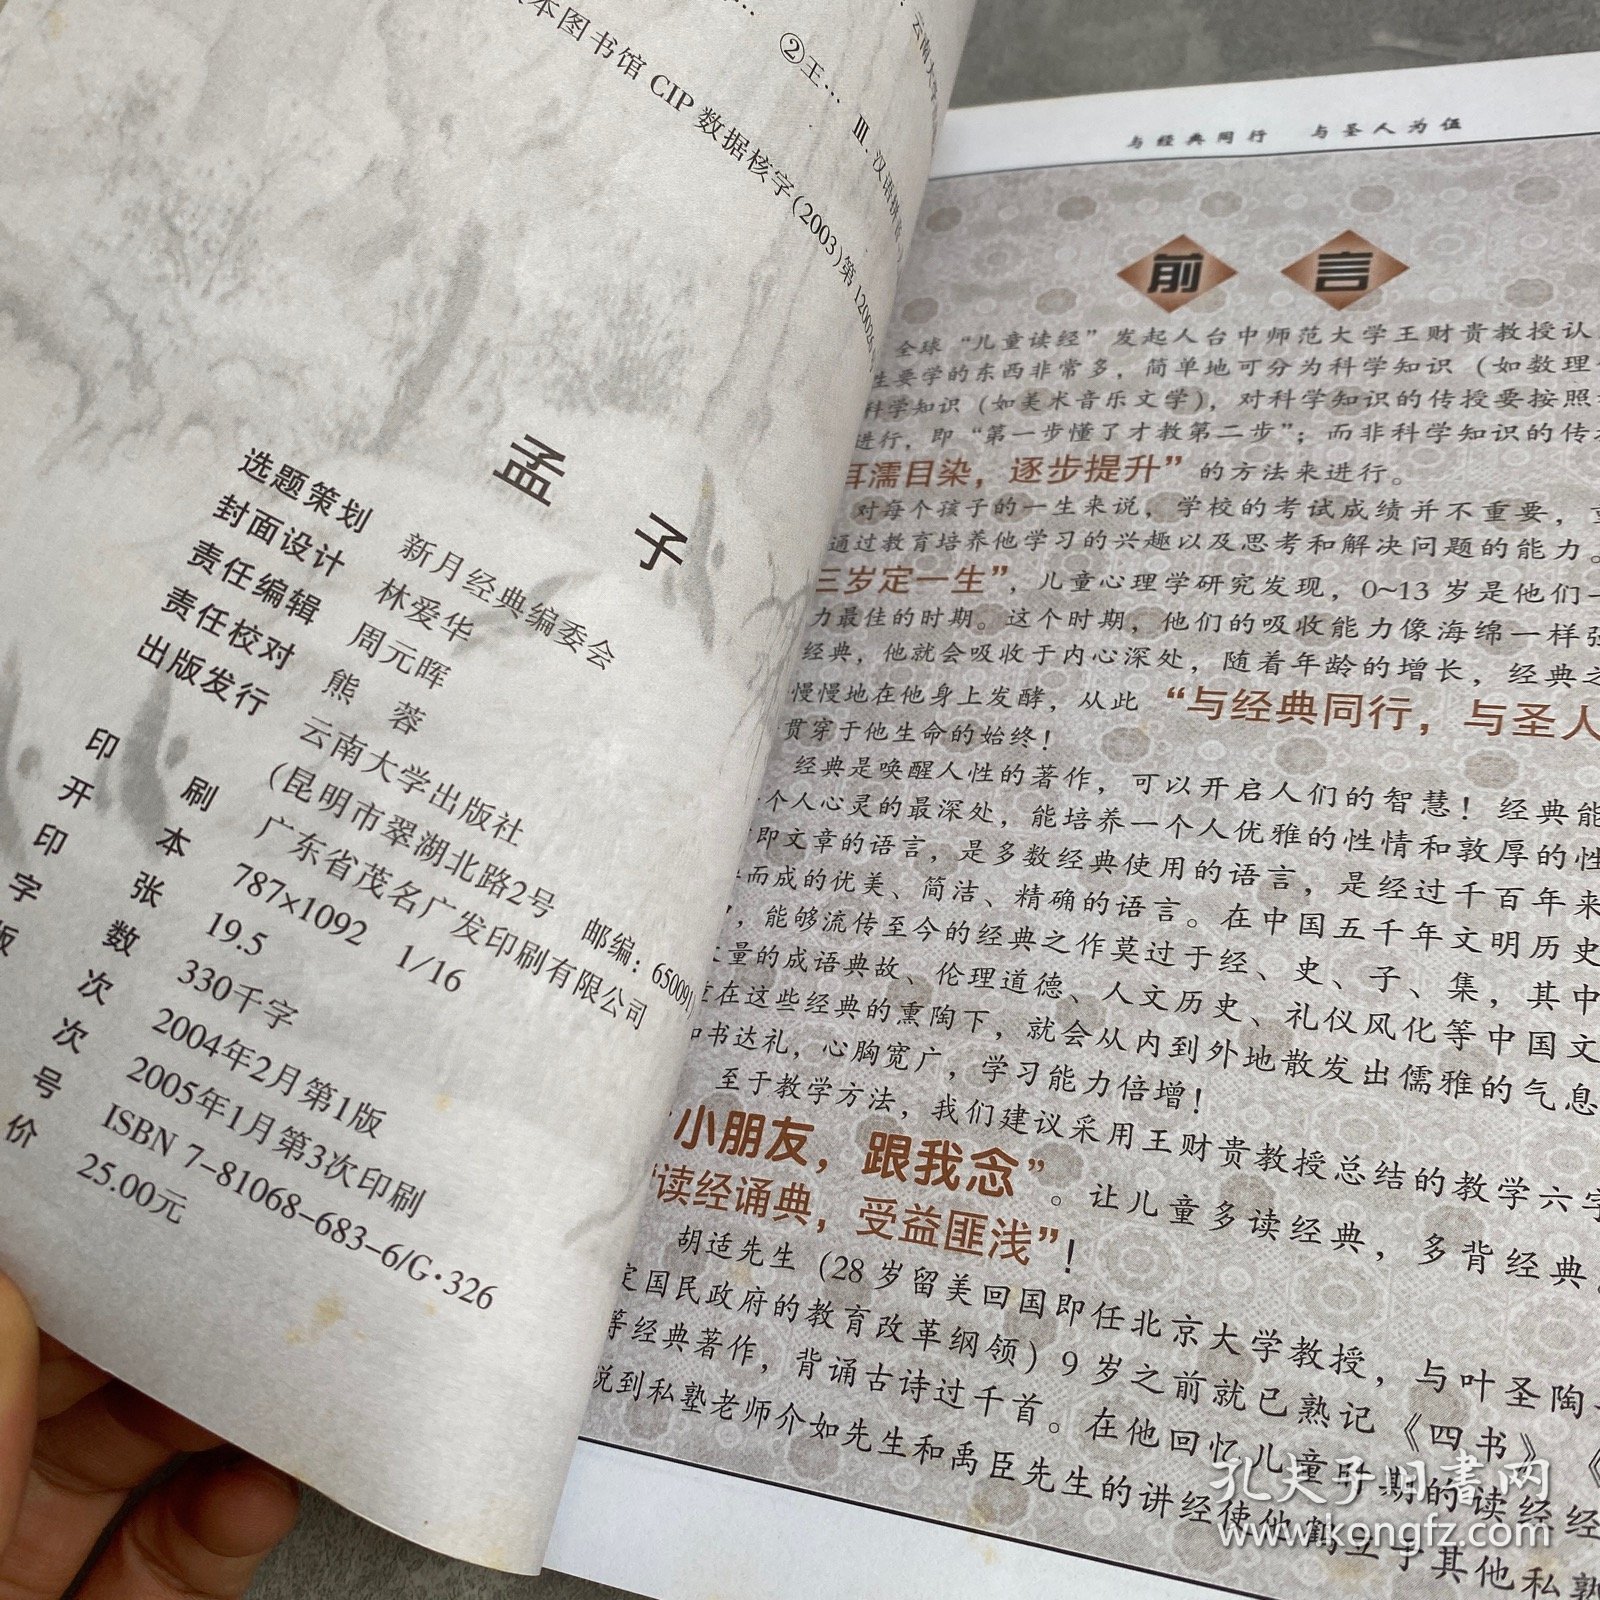 ②王… Ⅲ.汉语拼音
本图书馆 CIP 数据核字(2003)第
孟子
选题策划 新月经典编委会
封面设计 林爱华
责任编辑 周元晖
责任校对 熊 蓉
出版发行 云南大学出版社
(昆明市翠湖北路2号 邮编：650091)
印 刷 广东省茂名广发印刷有限公司
开 本 787×1092 1/16
印 张 19.5
字 数 330千字
版 次 2004年2月第1版
次 2005年1月第3次印刷
号 ISBN 7-81068-683-6/G·326
价 25.00元
与经典同行 与圣人为伍
前言
全球“儿童读经”发起人台中师范大学王财贵教授认
生要学的东西非常多，简单地可分为科学知识（如数理
科学知识（如美术音乐文学），对科学知识的传授要按照
进行，即“第一步懂了才教第二步”；而非科学知识的传
耳濡目染，逐步提升”的方法来进行。
对每个孩子的一生来说，学校的考试成绩并不重要，
通过教育培养他学习的兴趣以及思考和解决问题的能力。
三岁定一生”，儿童心理学研究发现，0~13岁是他们一
力最佳的时期。这个时期，他们的吸收能力像海绵一样强
经典，他就会吸收于内心深处，随着年龄的增长，经典之
慢慢地在他身上发酵，从此“与经典同行，与圣人
贯穿于他生命的始终！
经典是唤醒人性的著作，可以开启人们的智慧！经典能
个人心灵的最深处，能培养一个人优雅的性情和敦厚的性
即文章的语言，是多数经典使用的语言，是经过千百年来
而成的优美、简洁、精确的语言。在中国五千年文明历史
，能够流传至今的经典之作莫过于经、史、子、集，其中
量的成语典故、伦理道德、人文历史、礼仪风化等中国文
在这些经典的熏陶下，就会从内到外地散发出儒雅的气息
书达礼，心胸宽广，学习能力倍增！
至于教学方法，我们建议采用王财贵教授总结的教学六字
小朋友，跟我念”。让儿童多读经典，多背经典
“读经诵典，受益匪浅”！
胡适先生（28岁留美回国即任北京大学教授，与叶圣陶
定国民政府的教育改革纲领）9岁之前就已熟记《四书》《
等经典著作，背诵古诗过千首。在他回忆儿童时期的读经经
说到私塾老师介如先生和禹臣先生的讲经使他鹤立于其他私塾
孔夫子旧书网
www.kongfz.com